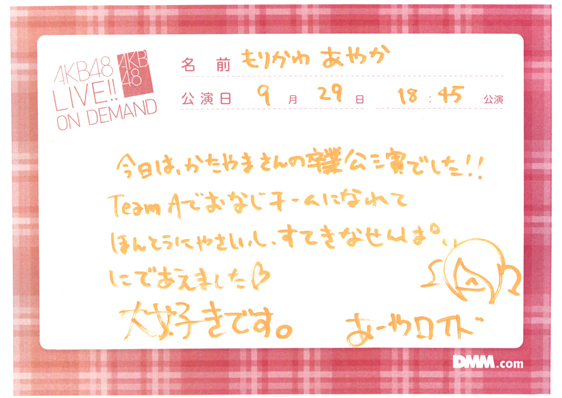 AKB48
LIVE!!
ON DEMAND
AKB
48
名前 もりかわ あやか
公演日 9月29日 18:45公演
今日は、かたやまさんの卒業公演でした!!
Team Aでおなじチームになれて
ほんとうにやさしいし、すてきなせんぱい
にであえました♡
大好きです。
あーやロイド
DMM.com